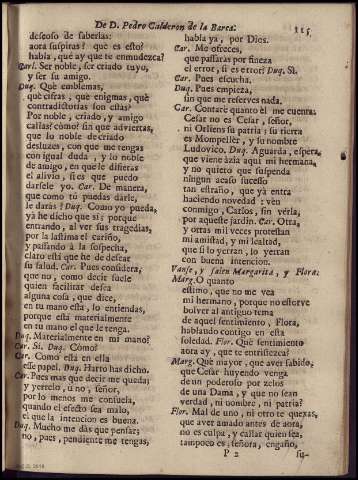 De D. Pedro Calderon de la Barca.
115
deseoso de saberlas:
aora suspiras? que es esto?
habla, què ay que te enmudezca?
Carl. Ser noble, ser criado tuyo,
y ser su amigo.
Duq. Què emblemas,
què cifras, què enigmas, què
contradictorias son estas?
Por noble, criado, y amigo
callas? còmo? sin que adviertas,
que lo noble de criado
desluzes, con que me tengas
con igual duda, y lo noble
de amigo, en que le difieras
el alivio, si es que puedo
darsele yo. Car. De manera,
que como tù puedas darle,
le daràs? Duq. Como yo pueda,
yà he dicho que sì; porque
entrando, al ver sus tragedias,
por la lastima el cariño,
y passando à la sospecha,
claro està que he de desear
su salud. Car. Pues considera,
que no, como decir suele
quien facilitar desea
alguna cosa, que dice,
en tu mano està, lo entiendas,
porque està materialmente
en tu mano el que le tenga.
Duq. Materialmente en mi mano?
Car. Sì. Duq. Còmo?
Car. Como està en ella
esse papel. Duq. Harto has dicho.
Car. Pues mas que decir me queda;
y yerrelo, ù no, señor,
por lo menos me consuela,
quando el efecto sea malo,
el que la intencion es buena.
Duq. Mucho me dàs que pensar;
no, pues, pendiente me tengas,
habla yà, por Dios.
Car. Me ofreces,
que passaràs por fineza
el error, si es error? Duq. Sì.
Car. Pues escucha.
Duq. Pues empieza,
sin que me reserves nada.
Car. Contarè quanto èl me cuenta:
Cesar no es Cesar, señor,
ni Orliens su patria; su tierra
es Mompellèr, y su nombre
Ludovico. Duq. Aguarda, espera,
que viene àzia aqui mi hermana,
y no quiero que suspenda
ningun acaso sucesso
tan estraño, que yà entra
haciendo novedad: vèn
conmigo, Carlos, sin vèrla,
por aqueste jardin. Car. Otra,
y otras mil veces protestan
mi amistad, y mi lealtad,
que si lo yerran, lo yerran
con buena intencion.
Vanse, y salen Margarita, y Flora:
Marg. O quanto
estimo, que no me vea
mi hermano, porque no estorve
bolver al antiguo tema
de aquel sentimiento, Flora,
hablando contigo en esta
soledad. Flor. Què sentimiento
aora ay, que te entristezca?
Marg. Què mayor, que aver sabido,
que Cesar huyendo venga
de un poderoso por zelos
de una Dama, y que no sean
verdad, ni nombre, ni patria?
Flor. Mal de uno, ni otro te quexas,
que aver amado antes de aora,
no es culpa, y callar quien sea,
tampoco es, señora, engaño,
P 2
su-